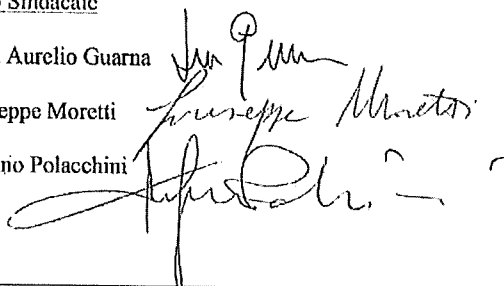 Sindacale
Aurelio Guarna
eppe Moretti Giuseppe Moretti
no Polacchini